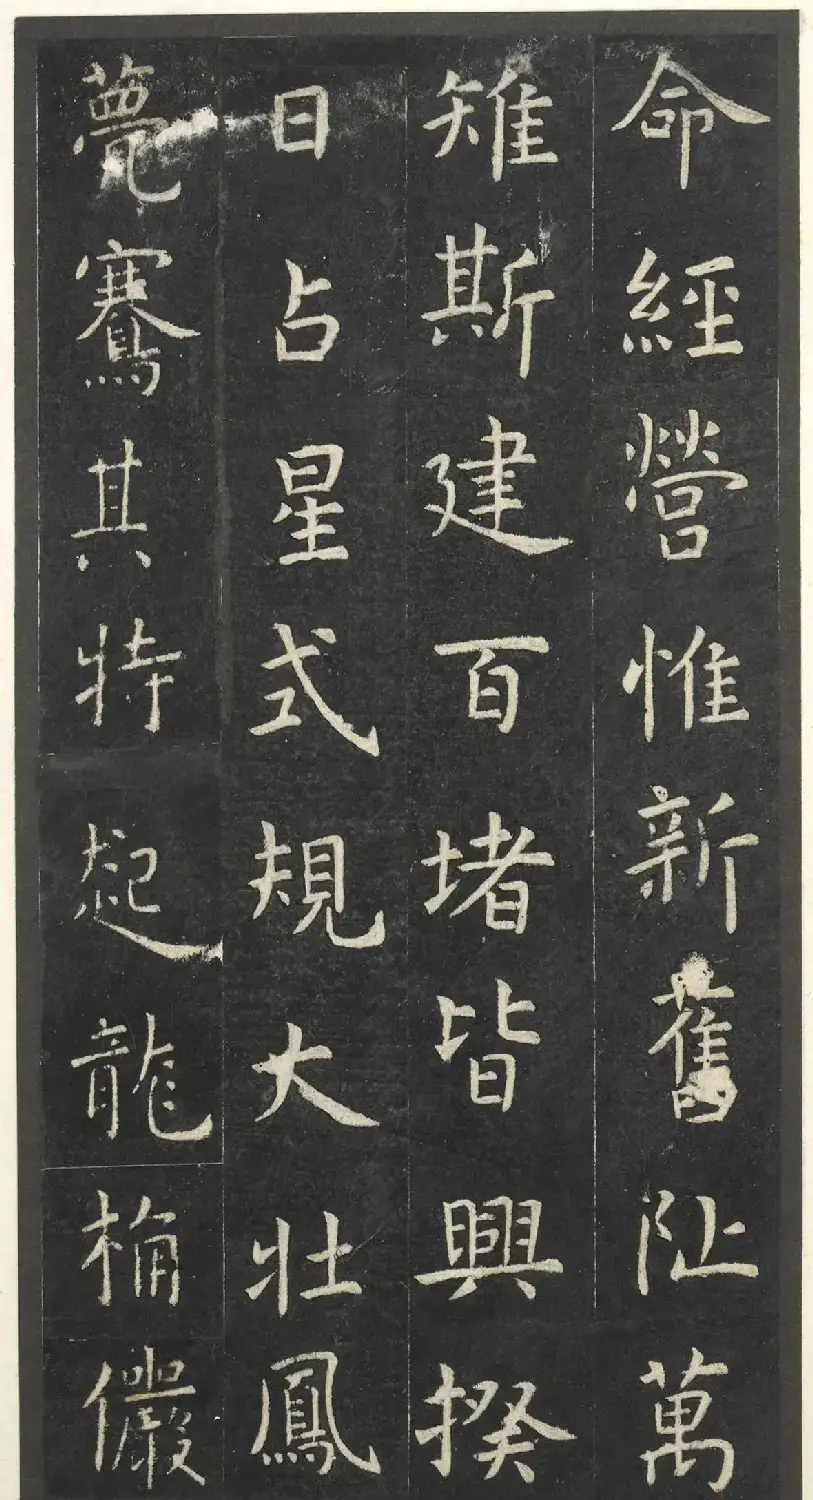 命經營惟新舊阯萬
雉斯建百堵皆興揆
日占星式規大壯鳳
甍騫其特起龍桷儼